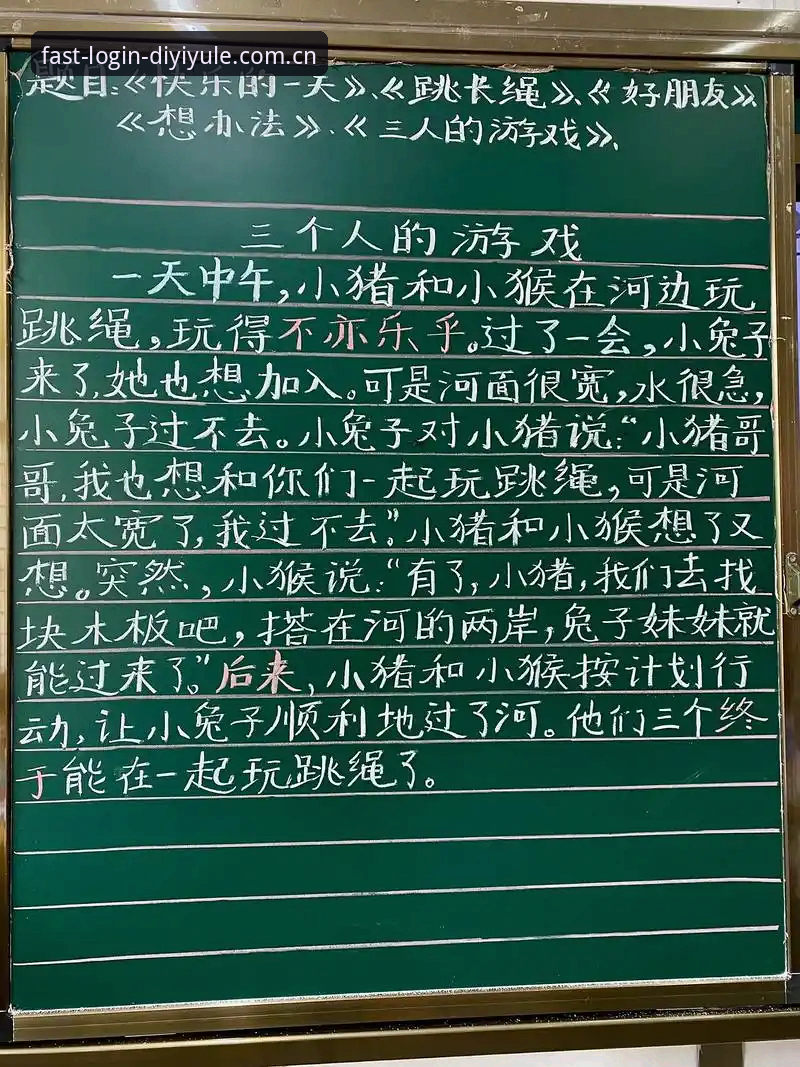 fast-login-diyiyule.com.cn
题目:《快乐的一天》、《跳长绳》、《好朋友》、
《想办法》、《三人的游戏》、
三个人的游戏
一天中午,小猪和小猴在河边玩
跳绳,玩得不亦乐乎。过了一会,小兔子
来了,她也想加入。可是河面很宽,水很急,
小兔子过不去。小兔子对小猪说:“小猪哥
哥,我也想和你们一起玩跳绳,可是河
面太宽了,我过不去。”小猪和小猴想了又
想。突然,小猴说:“有了,小猪,我们去找
块木板吧,搭在河的两岸,兔子妹妹就
能过来了。”后来,小猪和小猴按计划行
动,让小兔子顺利地过了河。他们三个终
于能在一起玩跳绳了。